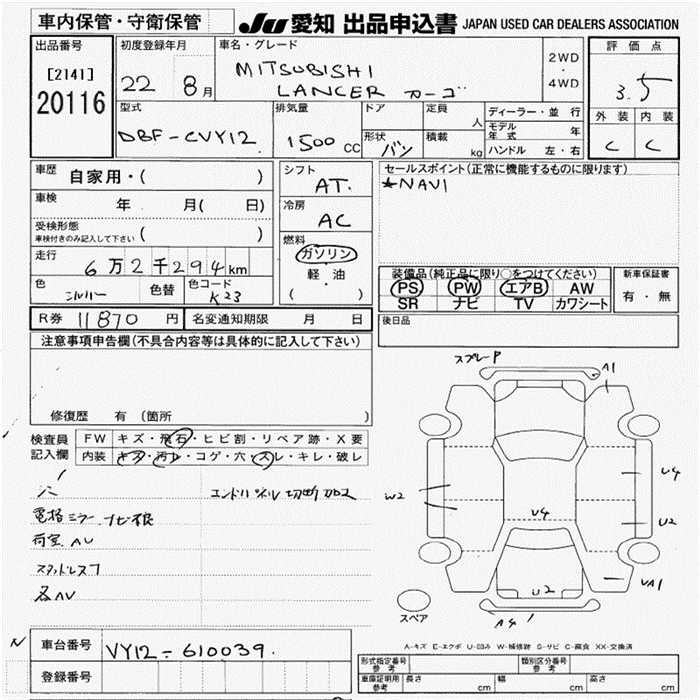 車内保管・守衛保管
JU 愛知 出品申込書 JAPAN USED CAR DEALERS ASSOCIATION
出品番号
[2141]
20116
初度登録年月
22 8月
車名・グレード
MITSUBISHI
LANCER カーゴ
2WD
・
4WD
評価点
3.5
外装 内装
C C
型式
DBF-CVY12
排気量
1500 CC
ドア
形状
バン
定員
人
積載
kg
ディーラー・並行
モデル年式 年
ハンドル 左・右
車歴
自家用・( )
車検
年 月( 日)
受検形態
車検付きのみ記入して下さい ( )
走行
6万2千294km
色
シルバー
色替
色コード
K23
シフト
AT.
冷房
AC
燃料
ガソリン
軽油
( )
セールスポイント(正常に機能するものに限ります)
★NAVI
装備品(純正品に限り○をつけてください)
PS PW エアB AW
SR ナビ TV カワシート
新車保証書
有・無
R券 11870 円
名変通知期限 月 日
後日品
注意事項申告欄(不具合内容等は具体的に記入して下さい)
修復歴 有 (箇所 )
検査員
記入欄
FW キズ・飛石・ヒビ割・リペア跡・X要
内装 キズ・汚レ・コゲ・穴・スレ・キレ・破レ
エンドパネル切断加工
電格ミラー ナビ根
荷室AU
スタッドレス7
各AU
スプレーP
A1
W2
U4
U4
U2
U2
UA1
A4
スペア
A-キズ E-エクボ U-凹み W-補修跡 S-サビ C-腐食 XX-交換済
N
車台番号
VY12-610039.
登録番号
型式指定番号
参考
類別区分番号
参考
車庫証明用
参考
長さ cm
幅 cm
高さ cm